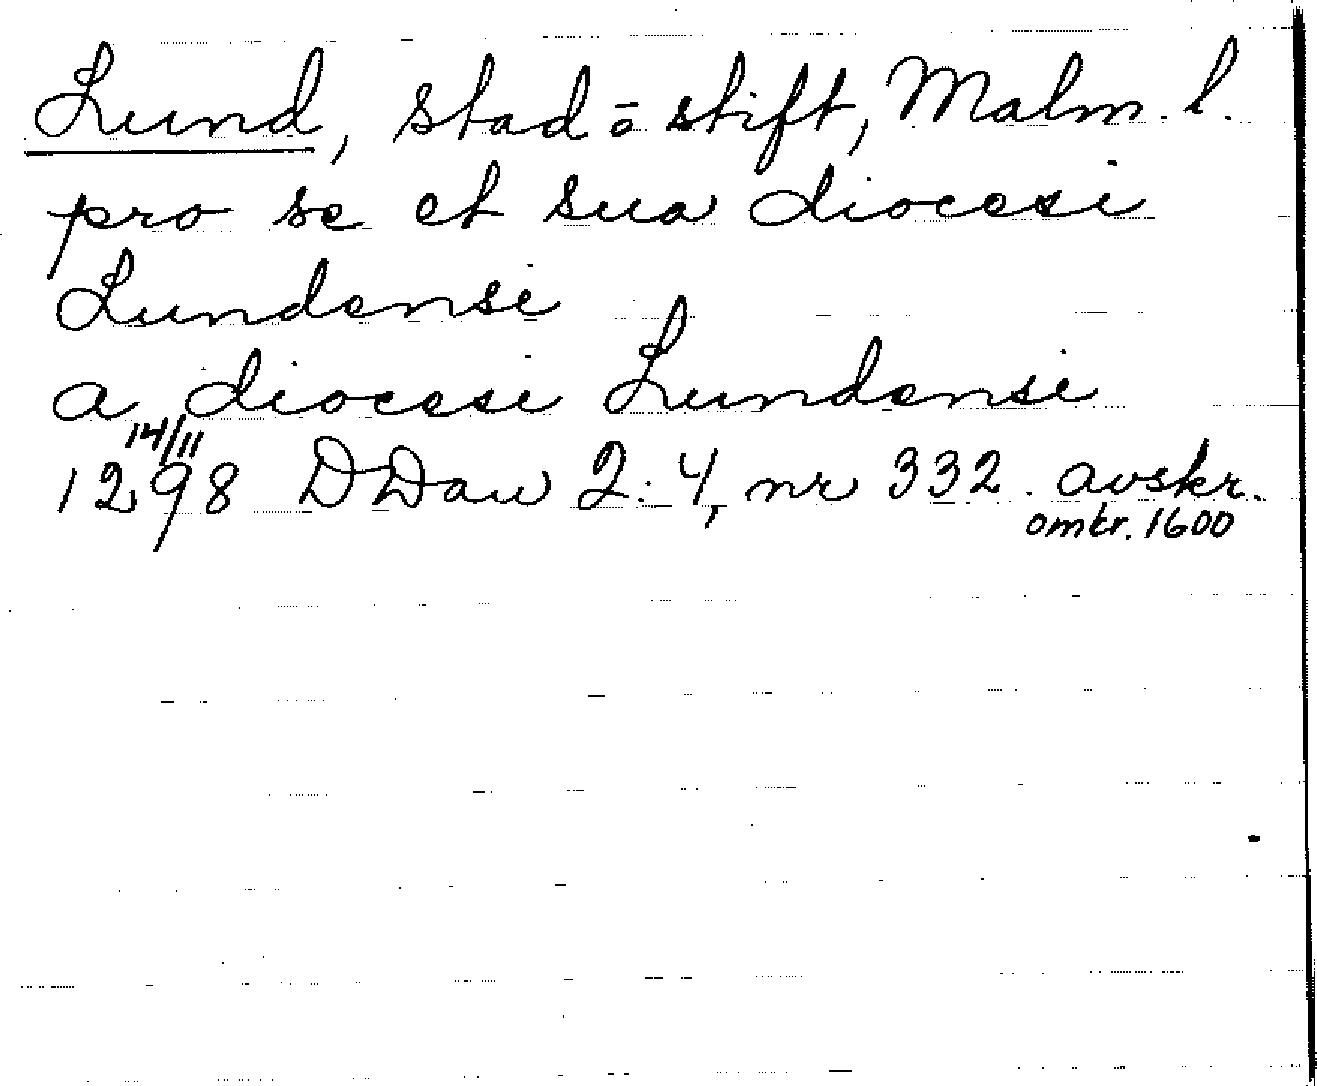 Lund, stad o stift, Malm. l.
pro se et sua diocesi
Lundensi
a diocesi Lundensi
14/11
1298 DDan 2:4, nr 332. avskr.
omkr. 1600